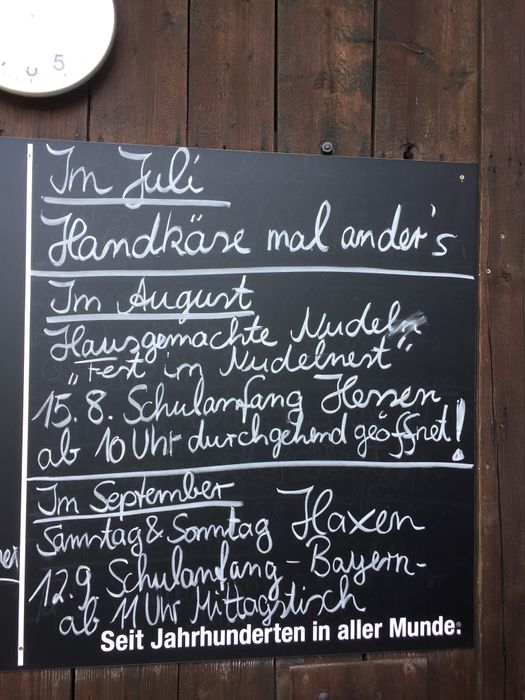 5
Im Juli
Handkäse mal ander's
Im August
Hausgemachte Nudeln
„Fest im Nudelnest"
15.8. Schulanfang Hessen
ab 10 Uhr durchgehend geöffnet!
Im September
Samstag & Sonntag Haxen
12.9 Schulanfang - Bayern-
ab 11 Uhr Mittagstisch
Seit Jahrhunderten in aller Munde.